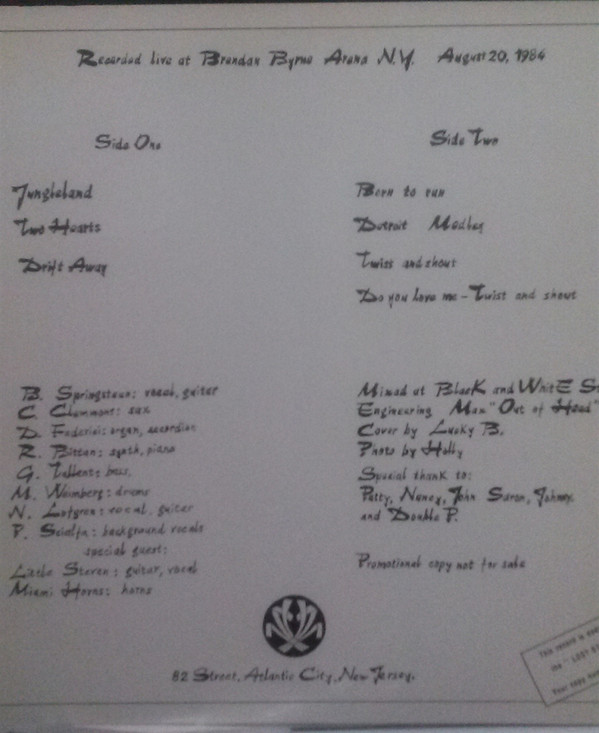 Recorded live at Brendan Byrne Arena N.Y. August 20, 1984
Side One
Jungleland
Two Hearts
Drift Away
Side Two
Born to run
Detroit Medley
Twist and shout
Do you love me - Twist and shout
B. Springsteen: vocal, guitar
C. Clemmons: sax
D. Federici: organ, accordion
R. Bittan: synth, piano
G. Tallent: bass,
M. Weinberg: drums
N. Lofgren: vocal, guitar
P. Scialfa: background vocals
special guest:
Little Steven: guitar, vocal
Miami Horns: horns
Mixed at Black and WhitE
Engineering Max "Out of Head"
Cover by Lucky B.
Photo by Holly
Special thank to:
Patty, Nancy, John Suron, Johnny
and Double P.
Promotional copy not for sale
82 Street, Atlantic City, New Jersey.
This record is
the "LOST
Your copy